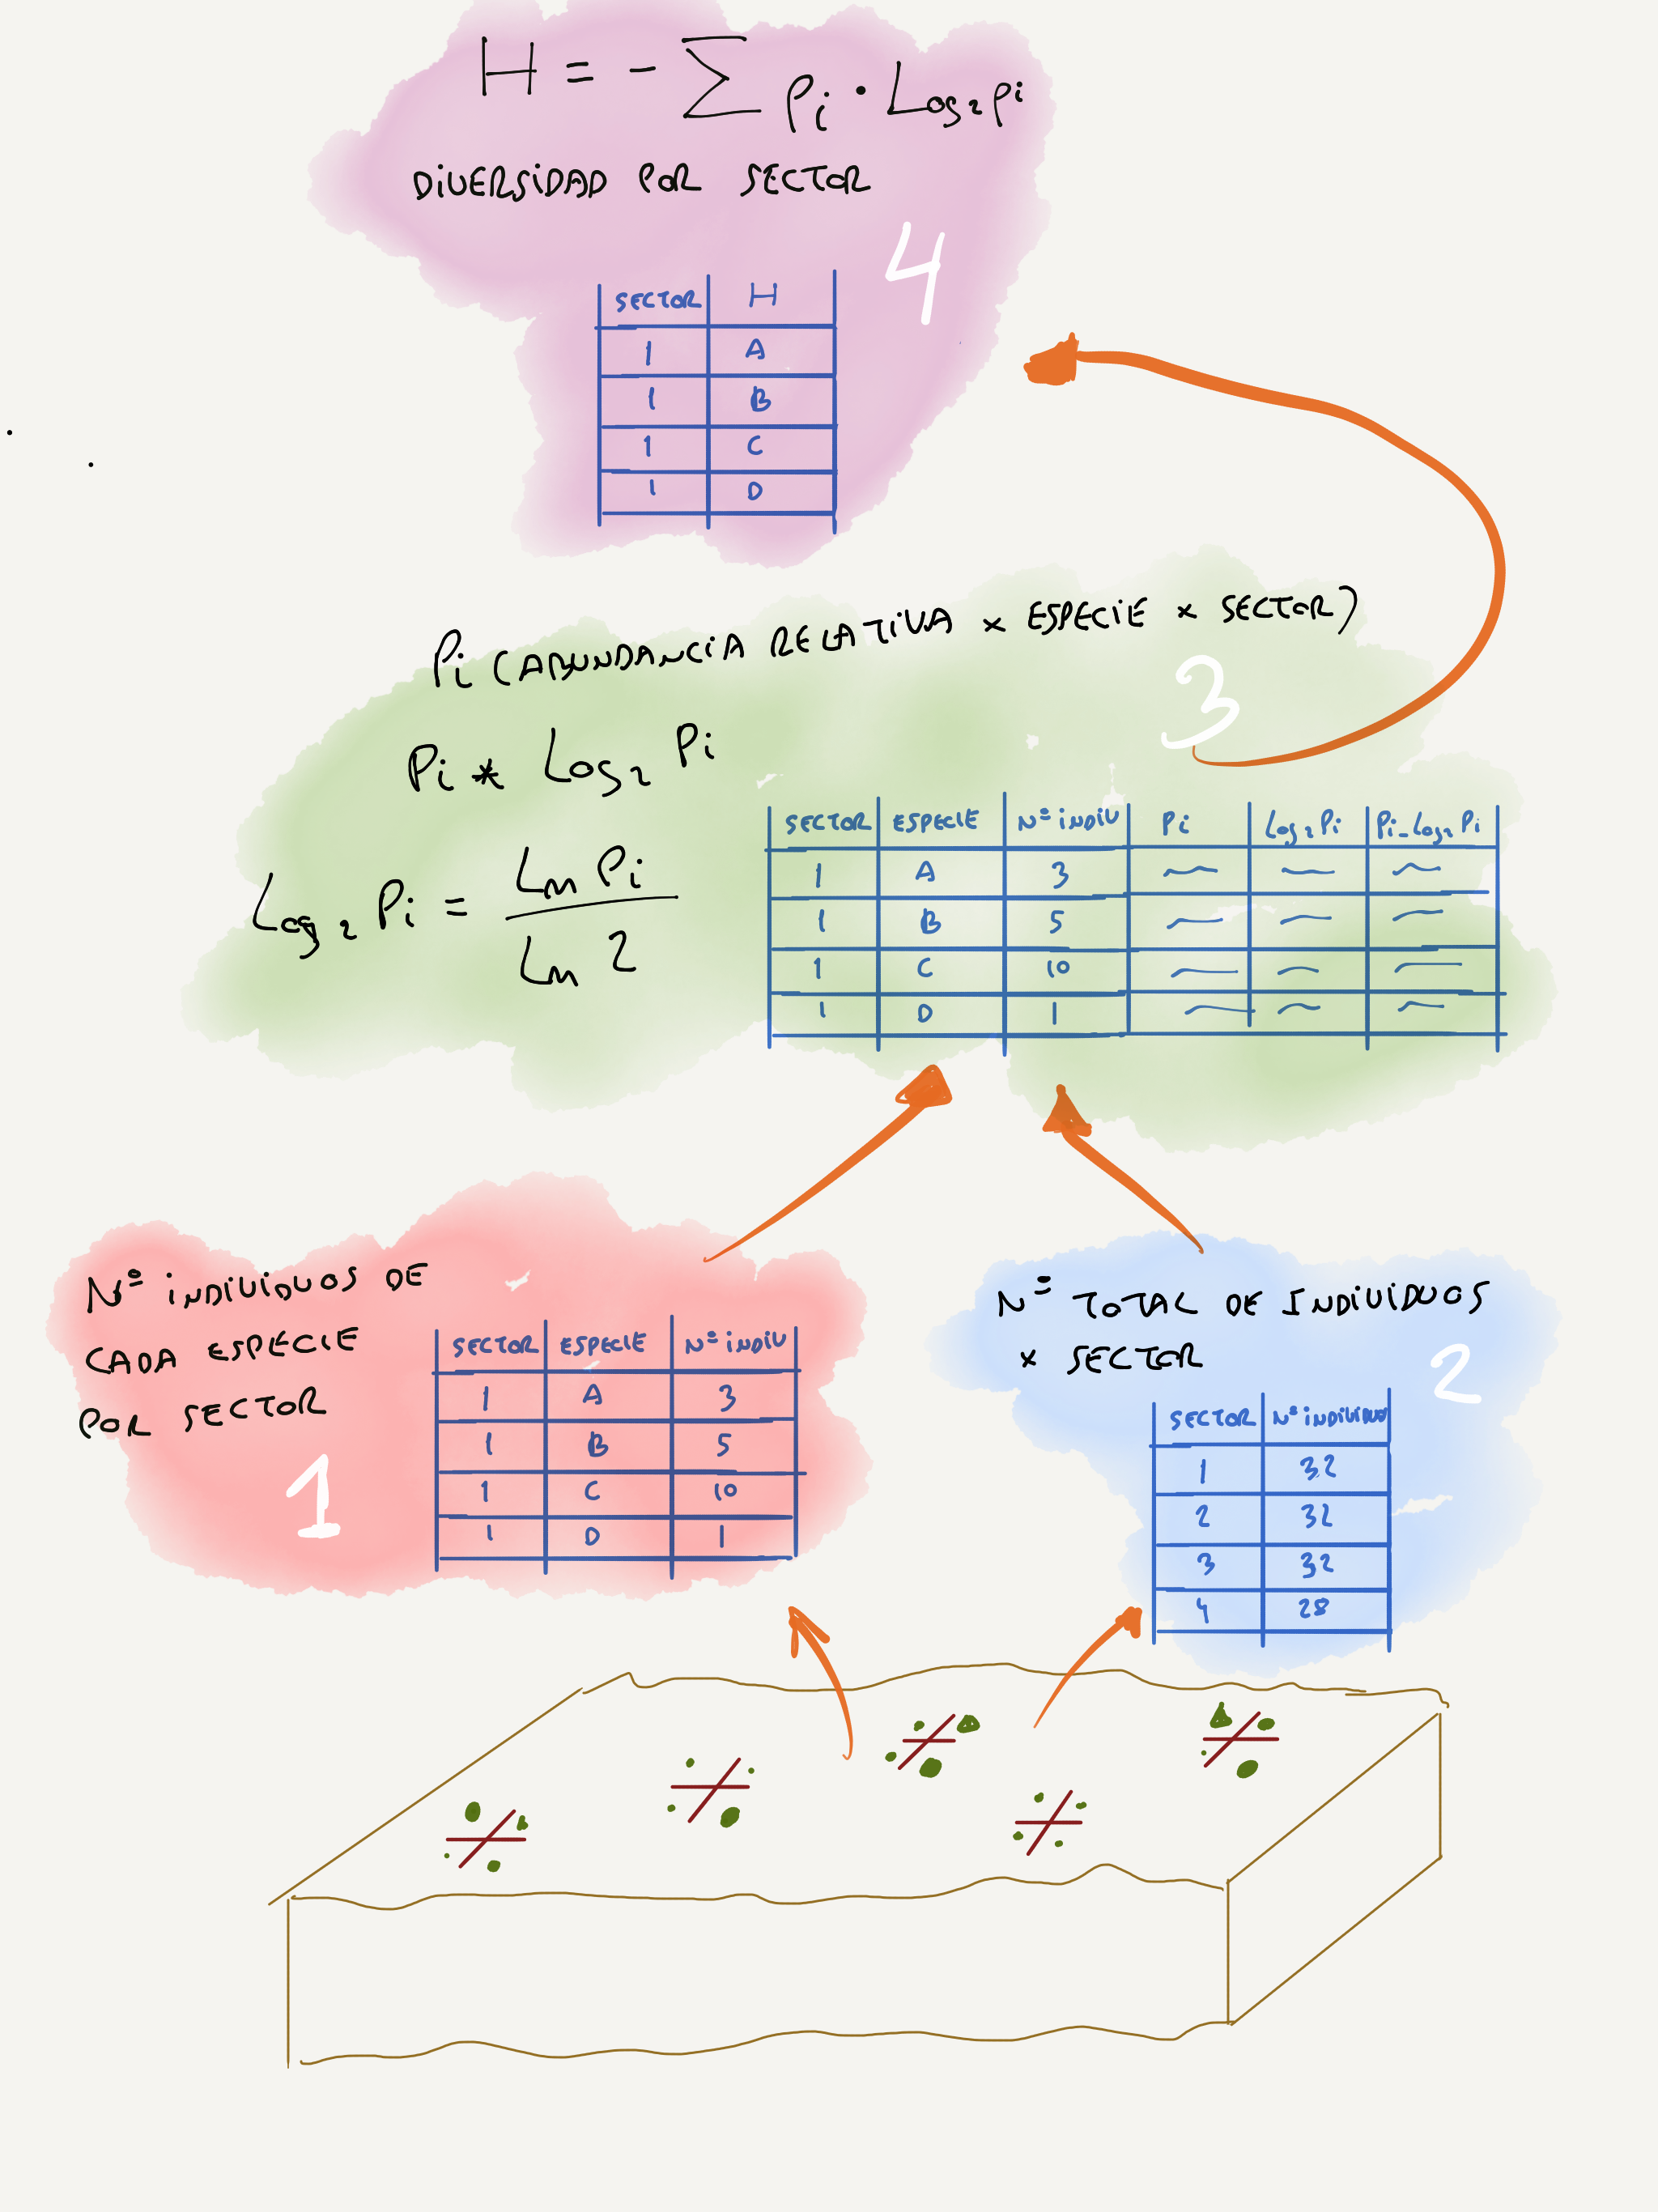 H = - ∑ Pi · Log₂ pi
DIVERSIDAD POR SECTOR
4
SECTOR H
1 A
1 B
1 C
1 D
Pi (ABUNDANCIA RELATIVA x ESPECIE x SECTOR)
3
Pi * Log₂ Pi
Log₂ Pi = Ln Pi / Ln 2
SECTOR ESPECIE Nº INDIV Pi Log₂ Pi Pi-Log₂ Pi
1 A 3
1 B 5
1 C 10
1 D 1
Nº INDIVIDUOS DE
CADA ESPECIE
POR SECTOR
1
SECTOR ESPECIE Nº INDIV
1 A 3
1 B 5
1 C 10
1 D 1
Nº TOTAL DE INDIVIDUOS
x SECTOR
2
SECTOR Nº INDIVIDUOS
1 32
2 32
3 32
4 28